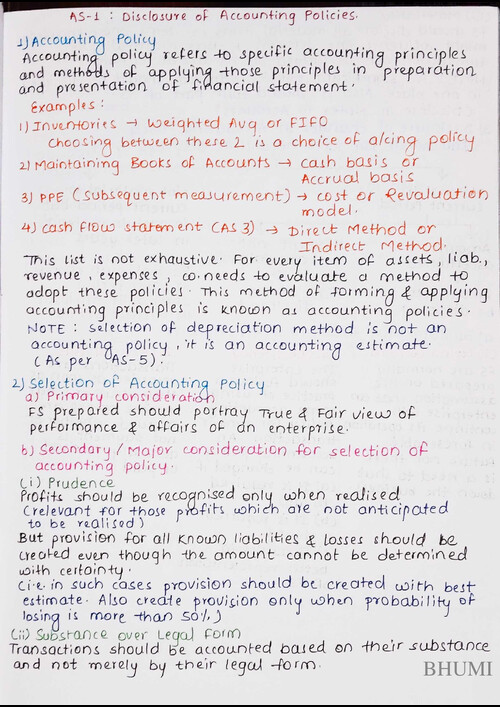 AS-1 : Disclosure of Accounting Policies.
1) Accounting Policy
Accounting policy refers to specific accounting principles
and methods of applying those principles in preparation
and presentation of financial statement.
Examples :
1) Inventories → Weighted Avg or FIFO
Choosing between these 2 is a choice of a/cing policy
2) Maintaining Books of Accounts → cash basis or
Accrual basis
3) PPE (Subsequent measurement) → cost or Revaluation
model.
4) cash flow statement (AS 3) → Direct Method or
Indirect Method.
This list is not exhaustive. For every item of assets, liab.,
revenue, expenses, co. needs to evaluate a method to
adopt these policies. This method of forming & applying
accounting principles is known as accounting policies.
NOTE : Selection of depreciation method is not an
accounting policy, it is an accounting estimate.
(As per AS-5).
2) Selection of Accounting Policy
a) Primary consideration
FS prepared should portray True & Fair view of
performance & affairs of an enterprise.
b) Secondary / Major consideration for selection of
accounting policy.
(i) Prudence
Profits should be recognised only when realised
(relevant for those profits which are not anticipated
to be realised)
But provision for all known liabilities & losses should be
created even though the amount cannot be determined
with certainty.
(i.e. in such cases provision should be created with best
estimate. Also create provision only when probability of
losing is more than 50%)
(ii) Substance over Legal form
Transactions should be accounted based on their substance
and not merely by their legal form.
BHUMI